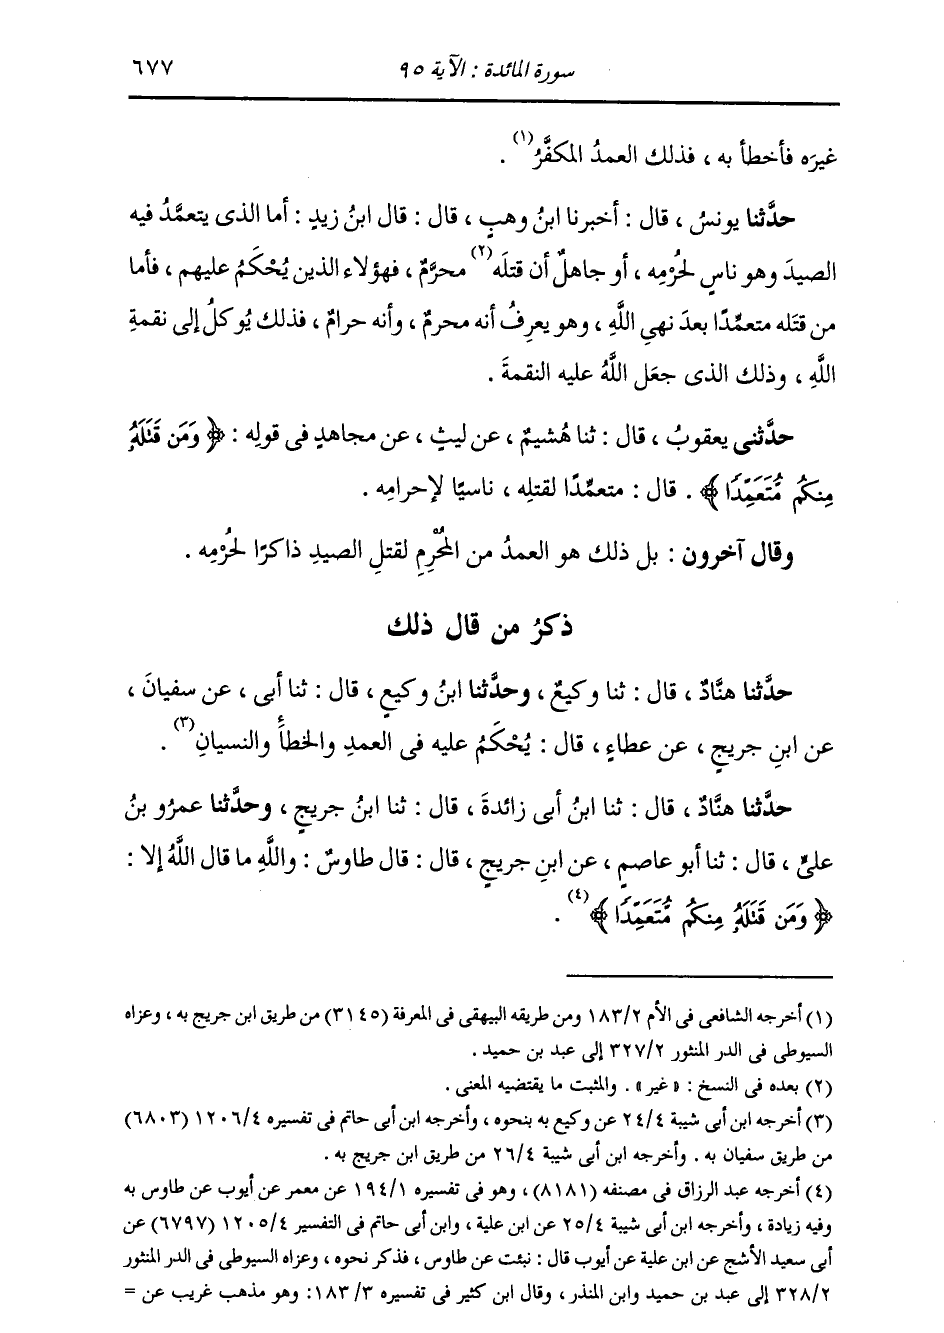 سورة المائدة : الآية ٩٥
٦٧٧
غيرَه فأخطأ به ، فذلك العمدُ المكفَّرُ(١) .
حدَّثنا يونسُ ، قال : أخبرنا ابنُ وهبٍ ، قال : قال ابنُ زيدٍ : أما الذى يتعمَّدُ فيه
الصيدَ وهو ناسٍ لحُرْمِه ، أو جاهلٌ أن قتلَه(٢) محرَّمٌ ، فهؤلاء الذين يُحْكَمُ عليهم ، فأما
من قتَله متعمِّدًا بعدَ نهيِ اللَّهِ ، وهو يعرِفُ أنه محرمٌ ، وأنه حرامٌ ، فذلك يُوكلُ إلى نقمةِ
اللَّهِ ، وذلك الذى جعَل اللَّهُ عليه النقمةَ .
حدَّثنى يعقوبُ ، قال : ثنا هُشيمٌ ، عن ليثٍ ، عن مجاهدٍ فى قولِه : ﴿ وَمَن قَتَلَهُۥ
مِنكُم مُّتَعَمِّدًا ﴾ . قال : متعمِّدًا لقتلِه ، ناسيًا لإحرامِه .
وقال آخرون : بل ذلك هو العمدُ من المُحْرِمِ لقتلِ الصيدِ ذاكرًا لحُرْمِه .
ذكرُ من قال ذلك
حدَّثنا هنَّادٌ ، قال : ثنا وكيعٌ ، وحدَّثنا ابنُ وكيعٍ ، قال : ثنا أبى ، عن سفيانَ ،
عن ابنِ جريجٍ ، عن عطاءٍ ، قال : يُحْكَمُ عليه فى العمدِ والخطأَ والنسيانِ(٣) .
حدَّثنا هنَّادٌ ، قال : ثنا ابنُ أبى زائدةَ ، قال : ثنا ابنُ جريجٍ ، وحدَّثنا عمرُو بنُ
علىٍّ ، قال : ثنا أبو عاصمٍ ، عن ابنِ جريجٍ ، قال : قال طاوسٌ : واللَّهِ ما قال اللَّهُ إلا :
﴿ وَمَن قَتَلَهُۥ مِنكُم مُّتَعَمِّدًا ﴾(٤) .
(١) أخرجه الشافعى فى الأم ١٨٣/٢ ومن طريقه البيهقى فى المعرفة (٣١٤٥) من طريق ابن جريج به ، وعزاه
السيوطى فى الدر المنثور ٣٢٧/٢ إلى عبد بن حميد .
(٢) بعده فى النسخ : « غير » . والمثبت ما يقتضيه المعنى .
(٣) أخرجه ابن أبى شيبة ٢٤/٤ عن وكيع به بنحوه ، وأخرجه ابن أبى حاتم فى تفسيره ١٢٠٦/٤ (٦٨٠٣)
من طريق سفيان به . وأخرجه ابن أبى شيبة ٢٦/٤ من طريق ابن جريج به .
(٤) أخرجه عبد الرزاق فى مصنفه (٨١٨١) ، وهو فى تفسيره ١٩٤/١ عن معمر عن أيوب عن طاوس به
وفيه زيادة ، وأخرجه ابن أبى شيبة ٢٥/٤ عن ابن علية ، وابن أبى حاتم فى التفسير ١٢٠٥/٤ (٦٧٩٧) عن
أبى سعيد الأشج عن ابن علية عن أيوب قال : نبئت عن طاوس ، فذكر نحوه ، وعزاه السيوطى فى الدر المنثور
٣٢٨/٢ إلى عبد بن حميد وابن المنذر ، وقال ابن كثير فى تفسيره ١٨٣/٣: وهو مذهب غريب عن =